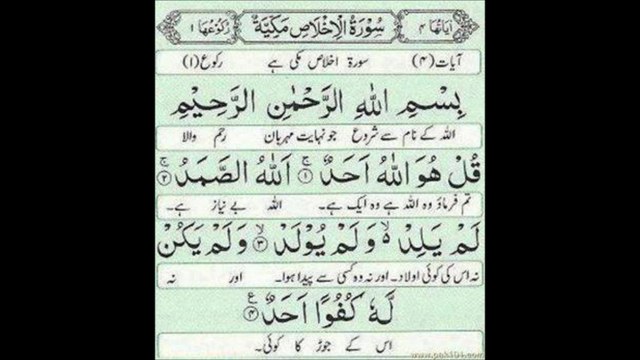 اٰیَاتُهَا ۴ سُوْرَةُ الْاِخْلَاصِ مَكِّيَّةٌ رُكُوْعُهَا ۱
آیات (۴) سورۃ اخلاص مکی ہے رکوع (۱)
بِسْمِ اللّٰهِ الرَّحْمٰنِ الرَّحِيْمِ
اللہ کے نام سے شروع جو نہایت مہربان رحم والا
قُلْ هُوَ اللّٰهُ اَحَدٌ ۚ﴿۱﴾ اَللّٰهُ الصَّمَدُ ۚ﴿۲﴾
تم فرماؤ وہ اللہ ہے وہ ایک ہے۔ اللہ بے نیاز ہے۔
لَمْ يَلِدْ ۙ وَلَمْ يُوْلَدْ ۙ﴿۳﴾ وَلَمْ يَكُنْ
نہ اس کی کوئی اولاد۔ اور نہ وہ کسی سے پیدا ہوا۔ اور نہ
لَّهٗ كُفُوًا اَحَدٌ ﴿۴﴾ ع
اس کے جوڑ کا کوئی۔
www.pak101.com